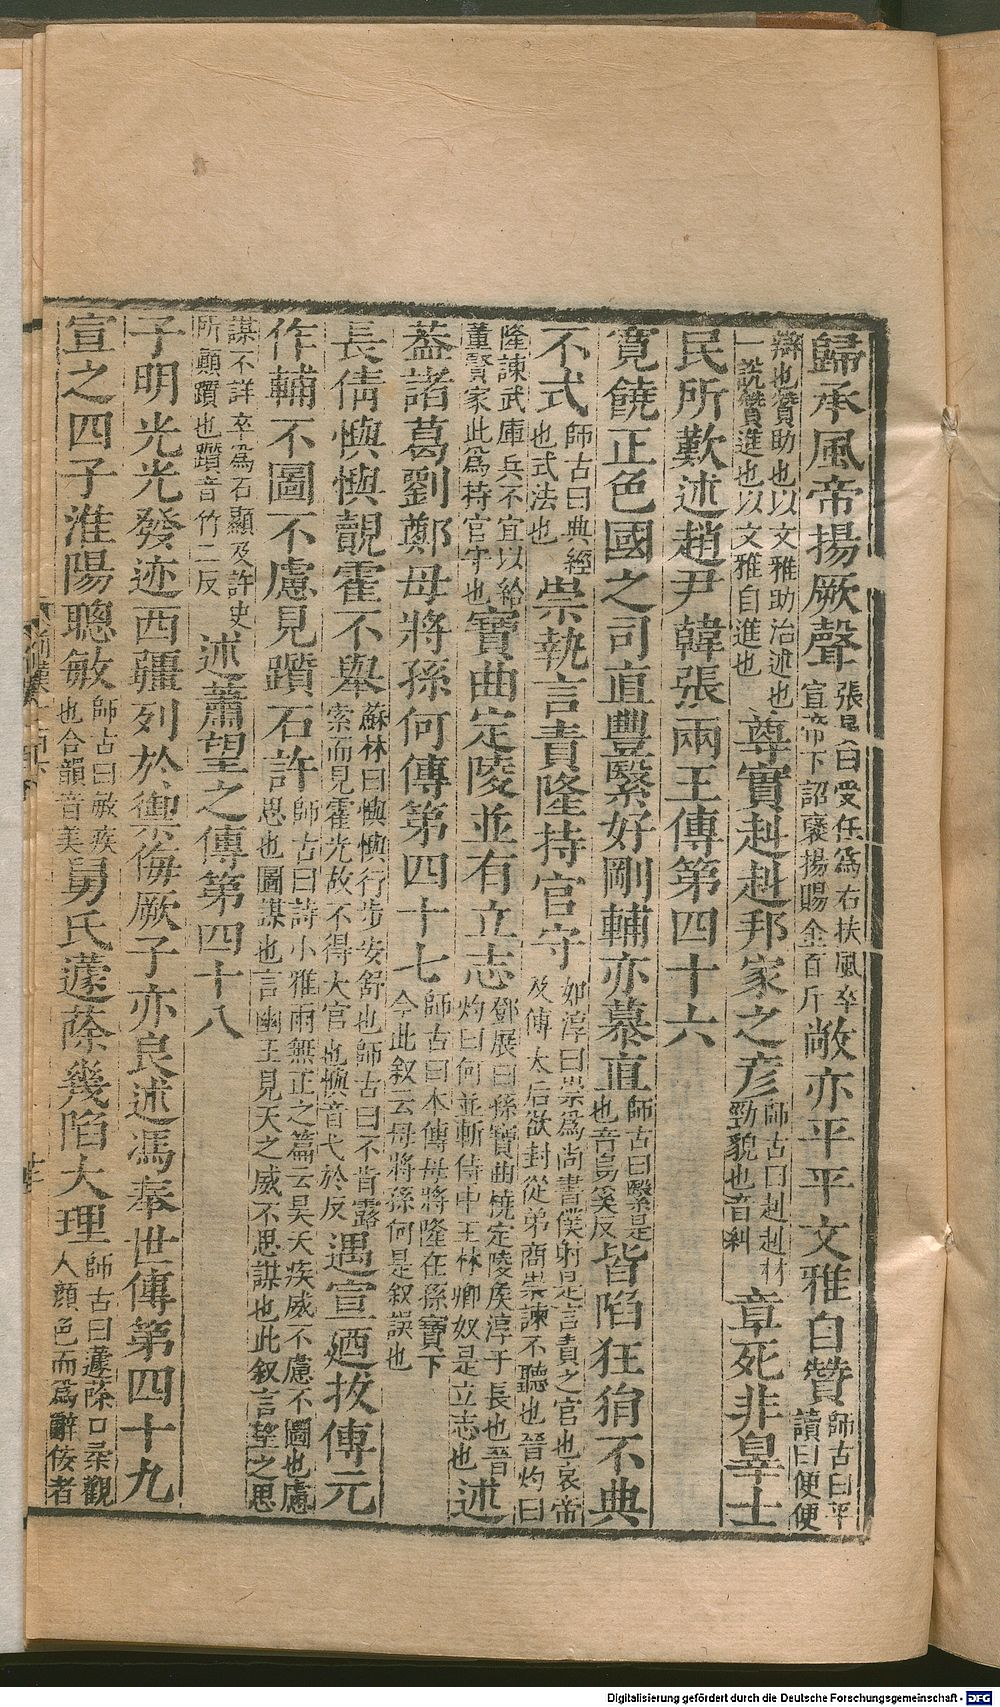 歸承風帝揚厥聲張晏曰受任爲右扶風卒宣帝下詔襃揚賜金百斤敞亦平平文雅自贊師古曰平讀曰便便
辯也贊助也以文雅助治述也一說贊進也以文雅自進也尊實赳赳邦家之彦師古曰赳赳材勁貌也音糾章死非辠士
民所歎述趙尹韓張兩王傳第四十六
寬饒正色國之司直豐繄好剛輔亦慕直師古曰繄是也音烏奚反皆陷狂狷不典
不式師古曰典經也式法也崇執言責隆持官守如淳曰崇爲尚書僕射是言責之官也哀帝及傳太后欲封從弟商崇諫不聽也晉灼曰
隆諫武庫兵不宜以給董賢家此爲持官守也寶曲定陵並有立志鄧展曰孫寶曲橈定陵侯淳于長也晉灼曰何並斬侍中王林卿奴是立志也述
葢諸葛劉鄭毋將孫何傳第四十七師古曰本傳毋將隆在孫寶下今此叙云毋將孫何是叙誤也
長倩懙懙覿霍不舉蘇林曰懙懙行步安舒也師古曰不肯露索而見霍光故不得大官也懙音弋於反遇宣廼拔傅元
作輔不圖不慮見躓石許師古曰詩小雅雨無正之篇云昊天疾威不慮不圖也慮思也圖謀也言幽王見天之威不思謀也此叙言望之思
謀不詳卒爲石顯及許史所顛躓也躓音竹二反述蕭望之傳第四十八
子明光光發迹西疆列於禦侮厥子亦良述馮奉世傳第四十九
宣之四子淮陽聰敏師古曰敏疾也合韻音美舅氏蘧蒢幾陷大理師古曰蘧蒢口柔觀人顏色而爲辭佞者
Digitalisierung gefördert durch die Deutsche Forschungsgemeinschaft - DFG